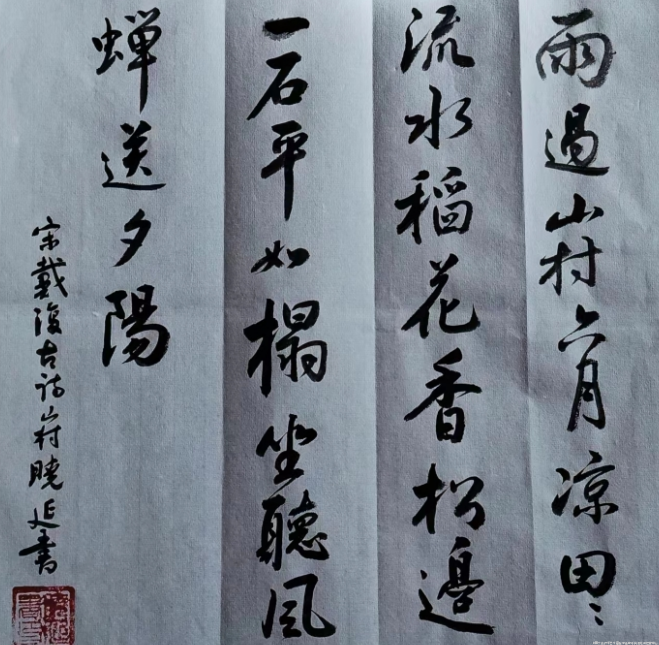 雨過山村六月凉田〻
流水稻花香松邊
一石平如榻坐聽風
蝉送夕陽
宋戴復古詩山村曉延書